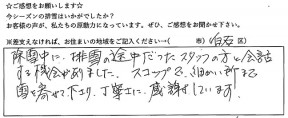 ☆ご感想をお願いします☆
今シーズンの排雪はいかがでしたか?
お客様の声が、私たちの原動力になっています。ぜひ、ご感想をお聞かせ下さい。
※差支えなければ、お住まいの地域をご記入ください…( 市)(白石区)
除雪中に、排雪の途中だったスタッフの子と会話
する機会がありました。スコップで、細かい所まで
雪を寄せて下さり、丁寧さに感謝しています!